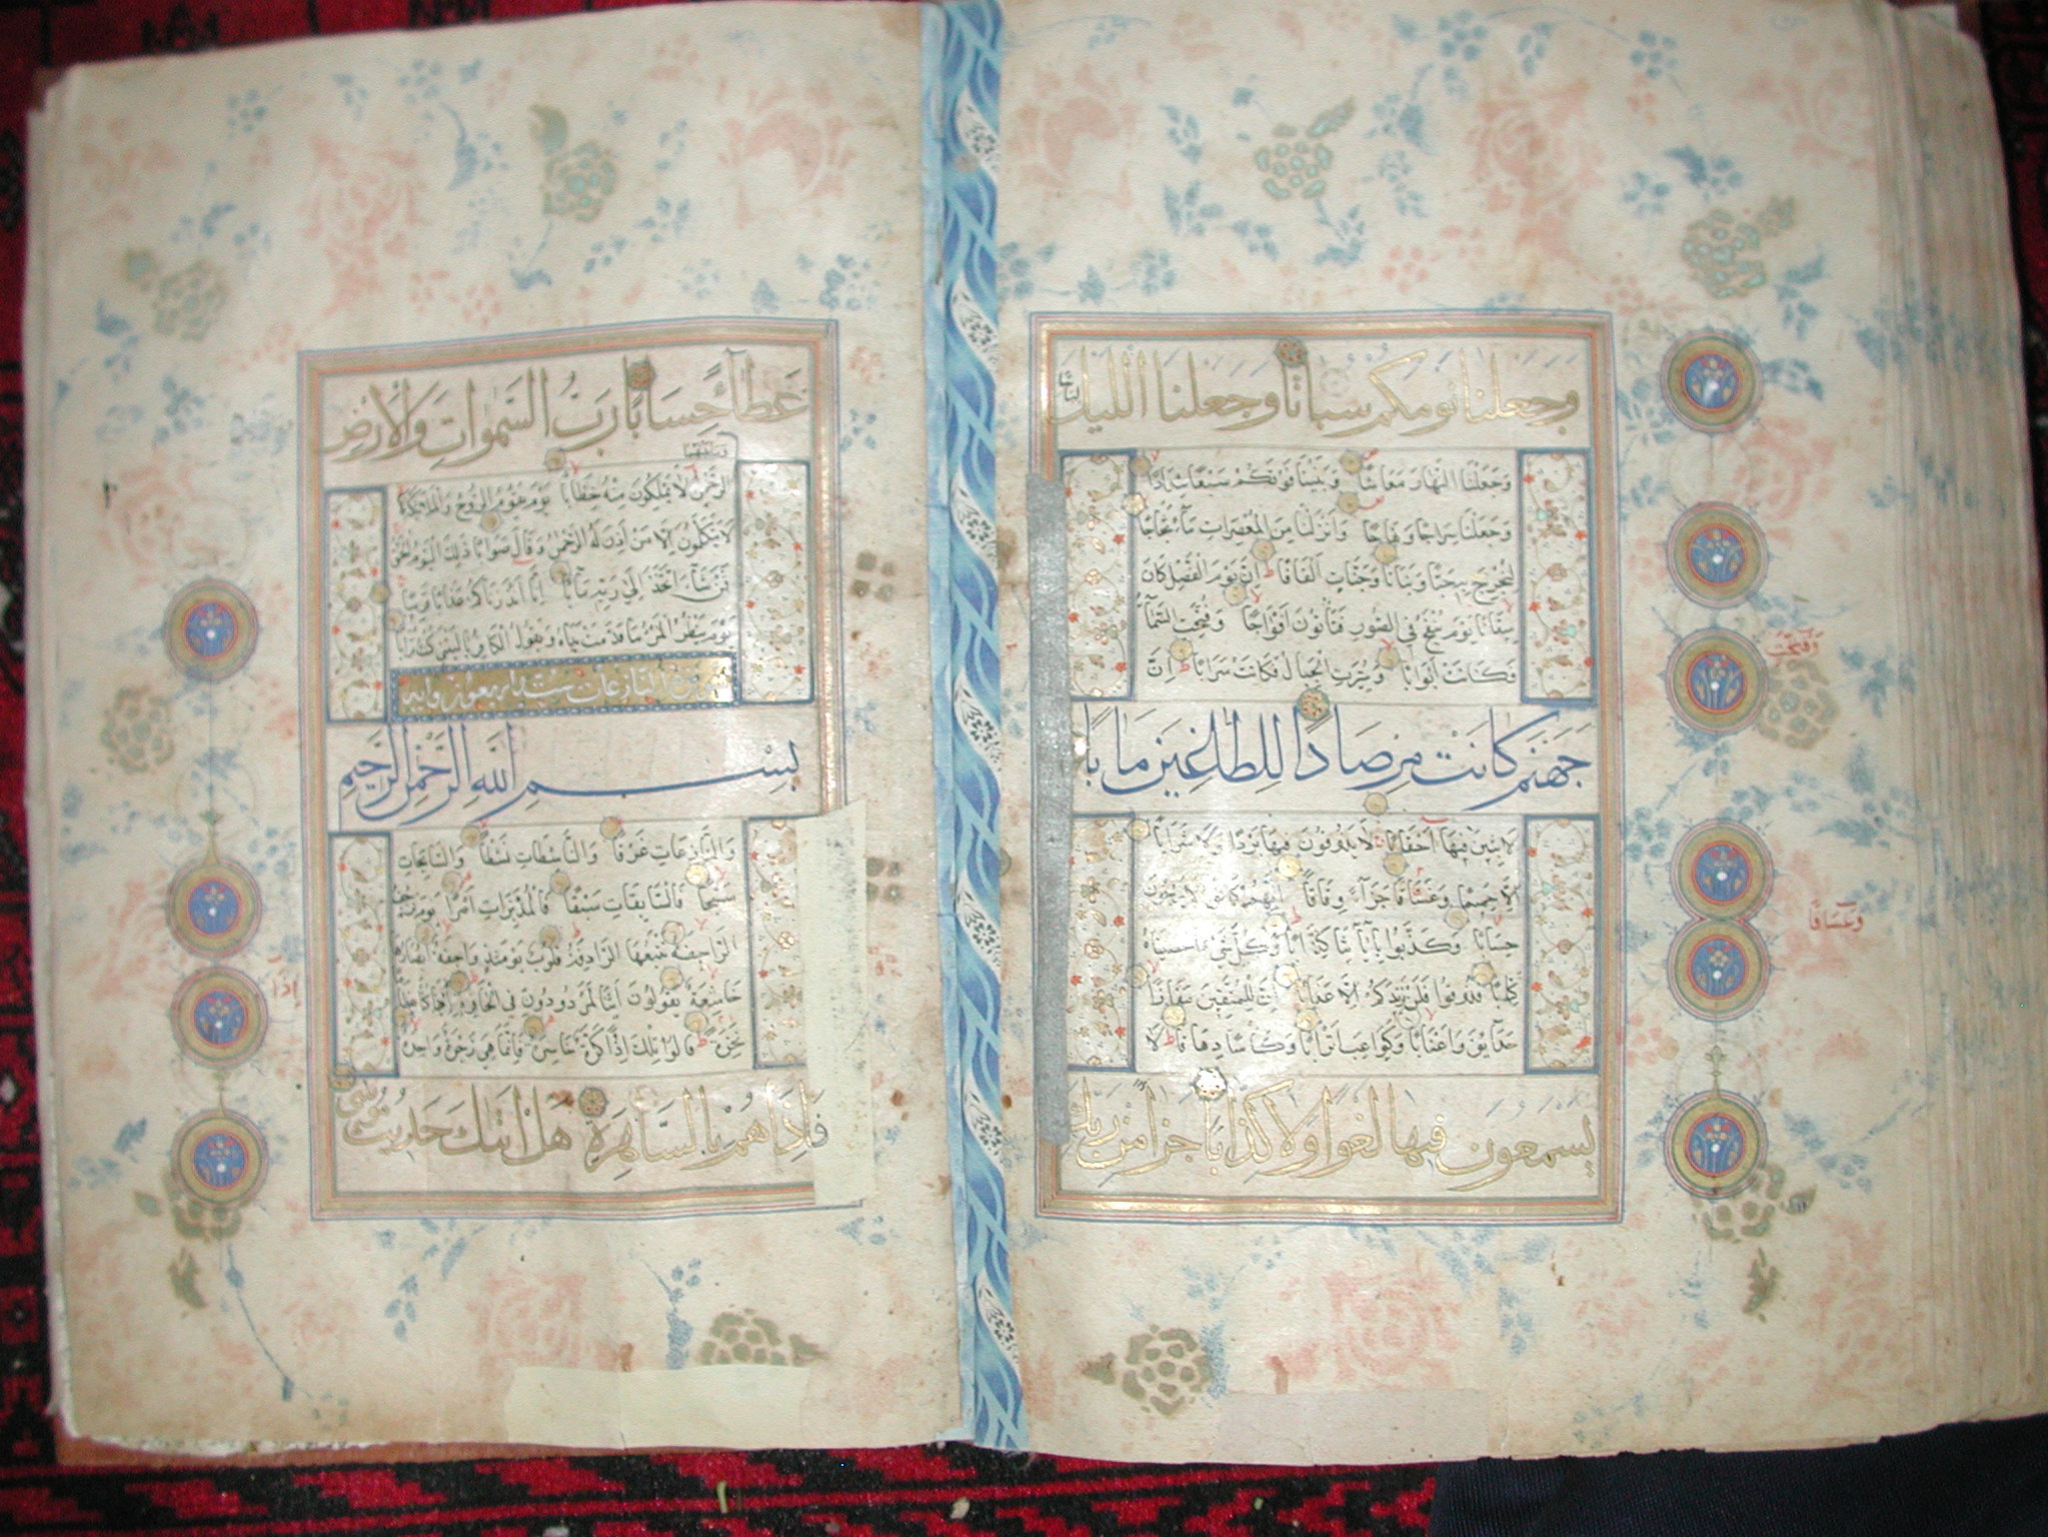 وجعلنا نومكم سباتا وجعلنا الليل
لباسا
وَجَعَلْنَا النَّهَارَ مَعَاشًا وَبَنَيْنَا فَوْقَكُمْ سَبْعًا شِدَادًا
وَجَعَلْنَا سِرَاجًا وَهَّاجًا وَأَنْزَلْنَا مِنَ الْمُعْصِرَاتِ مَاءً ثَجَّاجًا
لِنُخْرِجَ بِهِ حَبًّا وَنَبَاتًا وَجَنَّاتٍ أَلْفَافًا إِنَّ يَوْمَ الْفَصْلِ كَانَ
مِيقَاتًا يَوْمَ يُنْفَخُ فِي الصُّورِ فَتَأْتُونَ أَفْوَاجًا وَفُتِحَتِ السَّمَاءُ
فَكَانَتْ أَبْوَابًا وَسُيِّرَتِ الْجِبَالُ فَكَانَتْ سَرَابًا إِنَّ
جَهَنَّمَ كَانَتْ مِرْصَادًا لِلطَّاغِينَ مَآبًا
لَابِثِينَ فِيهَا أَحْقَابًا لَا يَذُوقُونَ فِيهَا بَرْدًا وَلَا شَرَابًا
إِلَّا حَمِيمًا وَغَسَّاقًا جَزَاءً وِفَاقًا إِنَّهُمْ كَانُوا لَا يَرْجُونَ
حِسَابًا وَكَذَّبُوا بِآيَاتِنَا كِذَّابًا وَكُلَّ شَيْءٍ أَحْصَيْنَاهُ
كِتَابًا فَذُوقُوا فَلَنْ نَزِيدَكُمْ إِلَّا عَذَابًا إِنَّ لِلْمُتَّقِينَ مَفَازًا
حَدَائِقَ وَأَعْنَابًا وَكَوَاعِبَ أَتْرَابًا وَكَأْسًا دِهَاقًا لَا
يسمعون فيها لغوا ولا كذابا جزا من ربك
وَفُتِّحَتِ
وغساقا
عَطَاءً حِسَابًا رَبِّ السَّمَوَاتِ وَالْأَرْضِ
وَمَا بَيْنَهُمَا
الرَّحْمَنِ لَا يَمْلِكُونَ مِنْهُ خِطَابًا يَوْمَ يَقُومُ الرُّوحُ وَالْمَلَائِكَةُ
لَا يَتَكَلَّمُونَ إِلَّا مَنْ أَذِنَ لَهُ الرَّحْمَنُ وَقَالَ صَوَابًا ذَلِكَ الْيَوْمُ الْحَقُّ
فَمَنْ شَاءَ اتَّخَذَ إِلَى رَبِّهِ مَآبًا إِنَّا أَنْذَرْنَاكُمْ عَذَابًا قَرِيبًا
يَوْمَ يَنْظُرُ الْمَرْءُ مَا قَدَّمَتْ يَدَاهُ وَيَقُولُ الْكَافِرُ يَا لَيْتَنِي كُنْتُ تُرَابًا
النازعات ست واربعون وايه
بِسْمِ اللَّهِ الرَّحْمَنِ الرَّحِيمِ
وَالنَّازِعَاتِ غَرْقًا وَالنَّاشِطَاتِ نَشْطًا وَالسَّابِحَاتِ
سَبْحًا فَالسَّابِقَاتِ سَبْقًا فَالْمُدَبِّرَاتِ أَمْرًا يَوْمَ تَرْجُفُ
الرَّاجِفَةُ تَتْبَعُهَا الرَّادِفَةُ قُلُوبٌ يَوْمَئِذٍ وَاجِفَةٌ أَبْصَارُهَا
خَاشِعَةٌ يَقُولُونَ أَئِنَّا لَمَرْدُودُونَ فِي الْحَافِرَةِ أَإِذَا كُنَّا عِظَامًا
نَخِرَةً قَالُوا تِلْكَ إِذًا كَرَّةٌ خَاسِرَةٌ فَإِنَّمَا هِيَ زَجْرَةٌ وَاحِدَةٌ
فَإِذَا هُمْ بِالسَّاهِرَةِ هَلْ أَتَاكَ حَدِيثُ مُوسَى
إذا